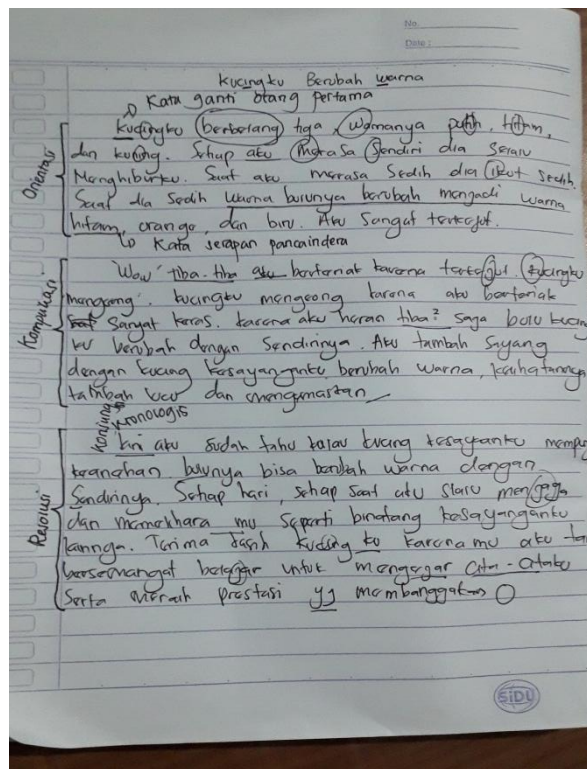 No.
Date :
Kucingku Berubah warna
Kata ganti orang pertama
Orientasi
Kucingku berbelang tiga, Warnanya putih, hitam,
dan kuning. Setiap aku merasa Sendiri dia Selalu
Menghiburku. Saat aku merasa Sedih dia ikut sedih.
Saat dia Sedih warna bulunya berubah mengadi warna
hitam, orange, dan biru. Aku Sangat terkejut.
Kata serapan pancaindera
Komplikasi
"Wow" tiba-tiba aku berteriak karena terkejut. Kucingku
mengeong. kucingku mengeong karena aku berteriak
Sangat keras. karena aku heran tiba² saja bulu kucing
ku berubah dengan Sendirinya. Aku tambah Sayang
dengan kucing kesayanganku berubah warna,
tambah lucu dan menggemaskan
Konjungsi
kronologis
Resolusi
kini aku sudah tahu kalau kucing
bulunya bisa berubah warna dengan
Sendirinya. Setiap hari, setiap saat aku Slalu menjaga
dan memelihara mu Seperti binatang kesayanganku
lainnya. Terima kasih kucing ku karena mu aku
bersemangat belajar untuk mengejar cita-citaku
Serta meraih prestasi yg membanggakan
SiDU